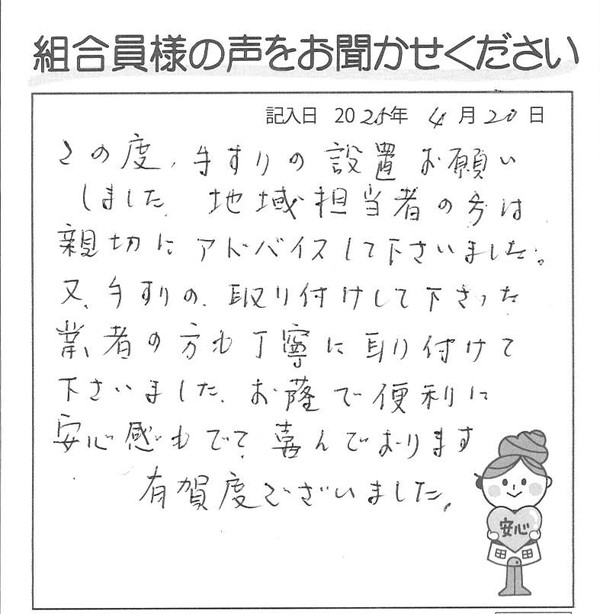 組合員様の声をお聞かせください
記入日 2025年 4月20日
この度、手すりの設置お願い
しました。地域担当者の方は
親切にアドバイスして下さいました。
又、手すりの、取り付けして下さった
業者の方も丁寧に取り付けて
下さいました。お蔭で便利に
安心感もでて、喜んでおります
有賀度ございました。
安心